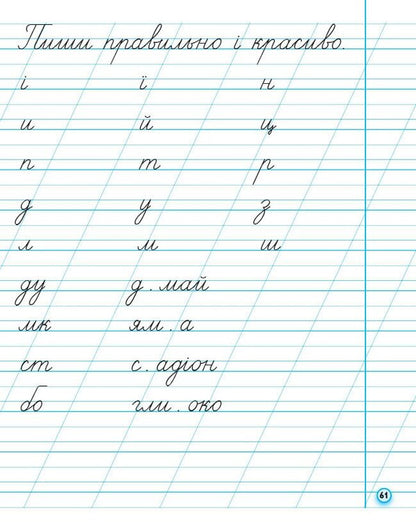 Пиши правильно і красиво.
і ї н
и й ц
п т р
д у з
л м ш
ду д . май
мк ям . а
ст с . адіон
бо гли . око
61